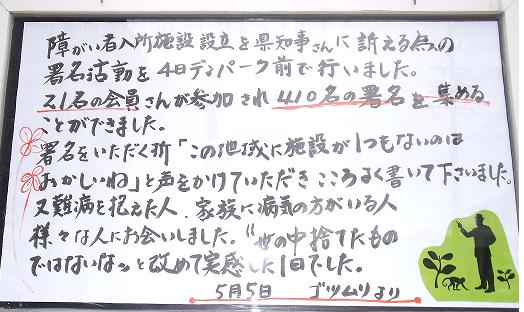 障がい者入所施設設立を県知事さんに訴える為の
署名活動を4日ディパーク前で行いました。
21名の会員さんが参加され410名の署名を集める
ことができました。
署名をいただく折「この地域に施設が1つもないのは
おかしいね」と声をかけていただきこころよく書いて下さいました。
又難病を抱えた人、家族に病気の方がいる人
様々な人にお会いしました。"世の中捨てたもの
ではないなッと改めて実感した1日でした。
5月5日 ゴツムリより